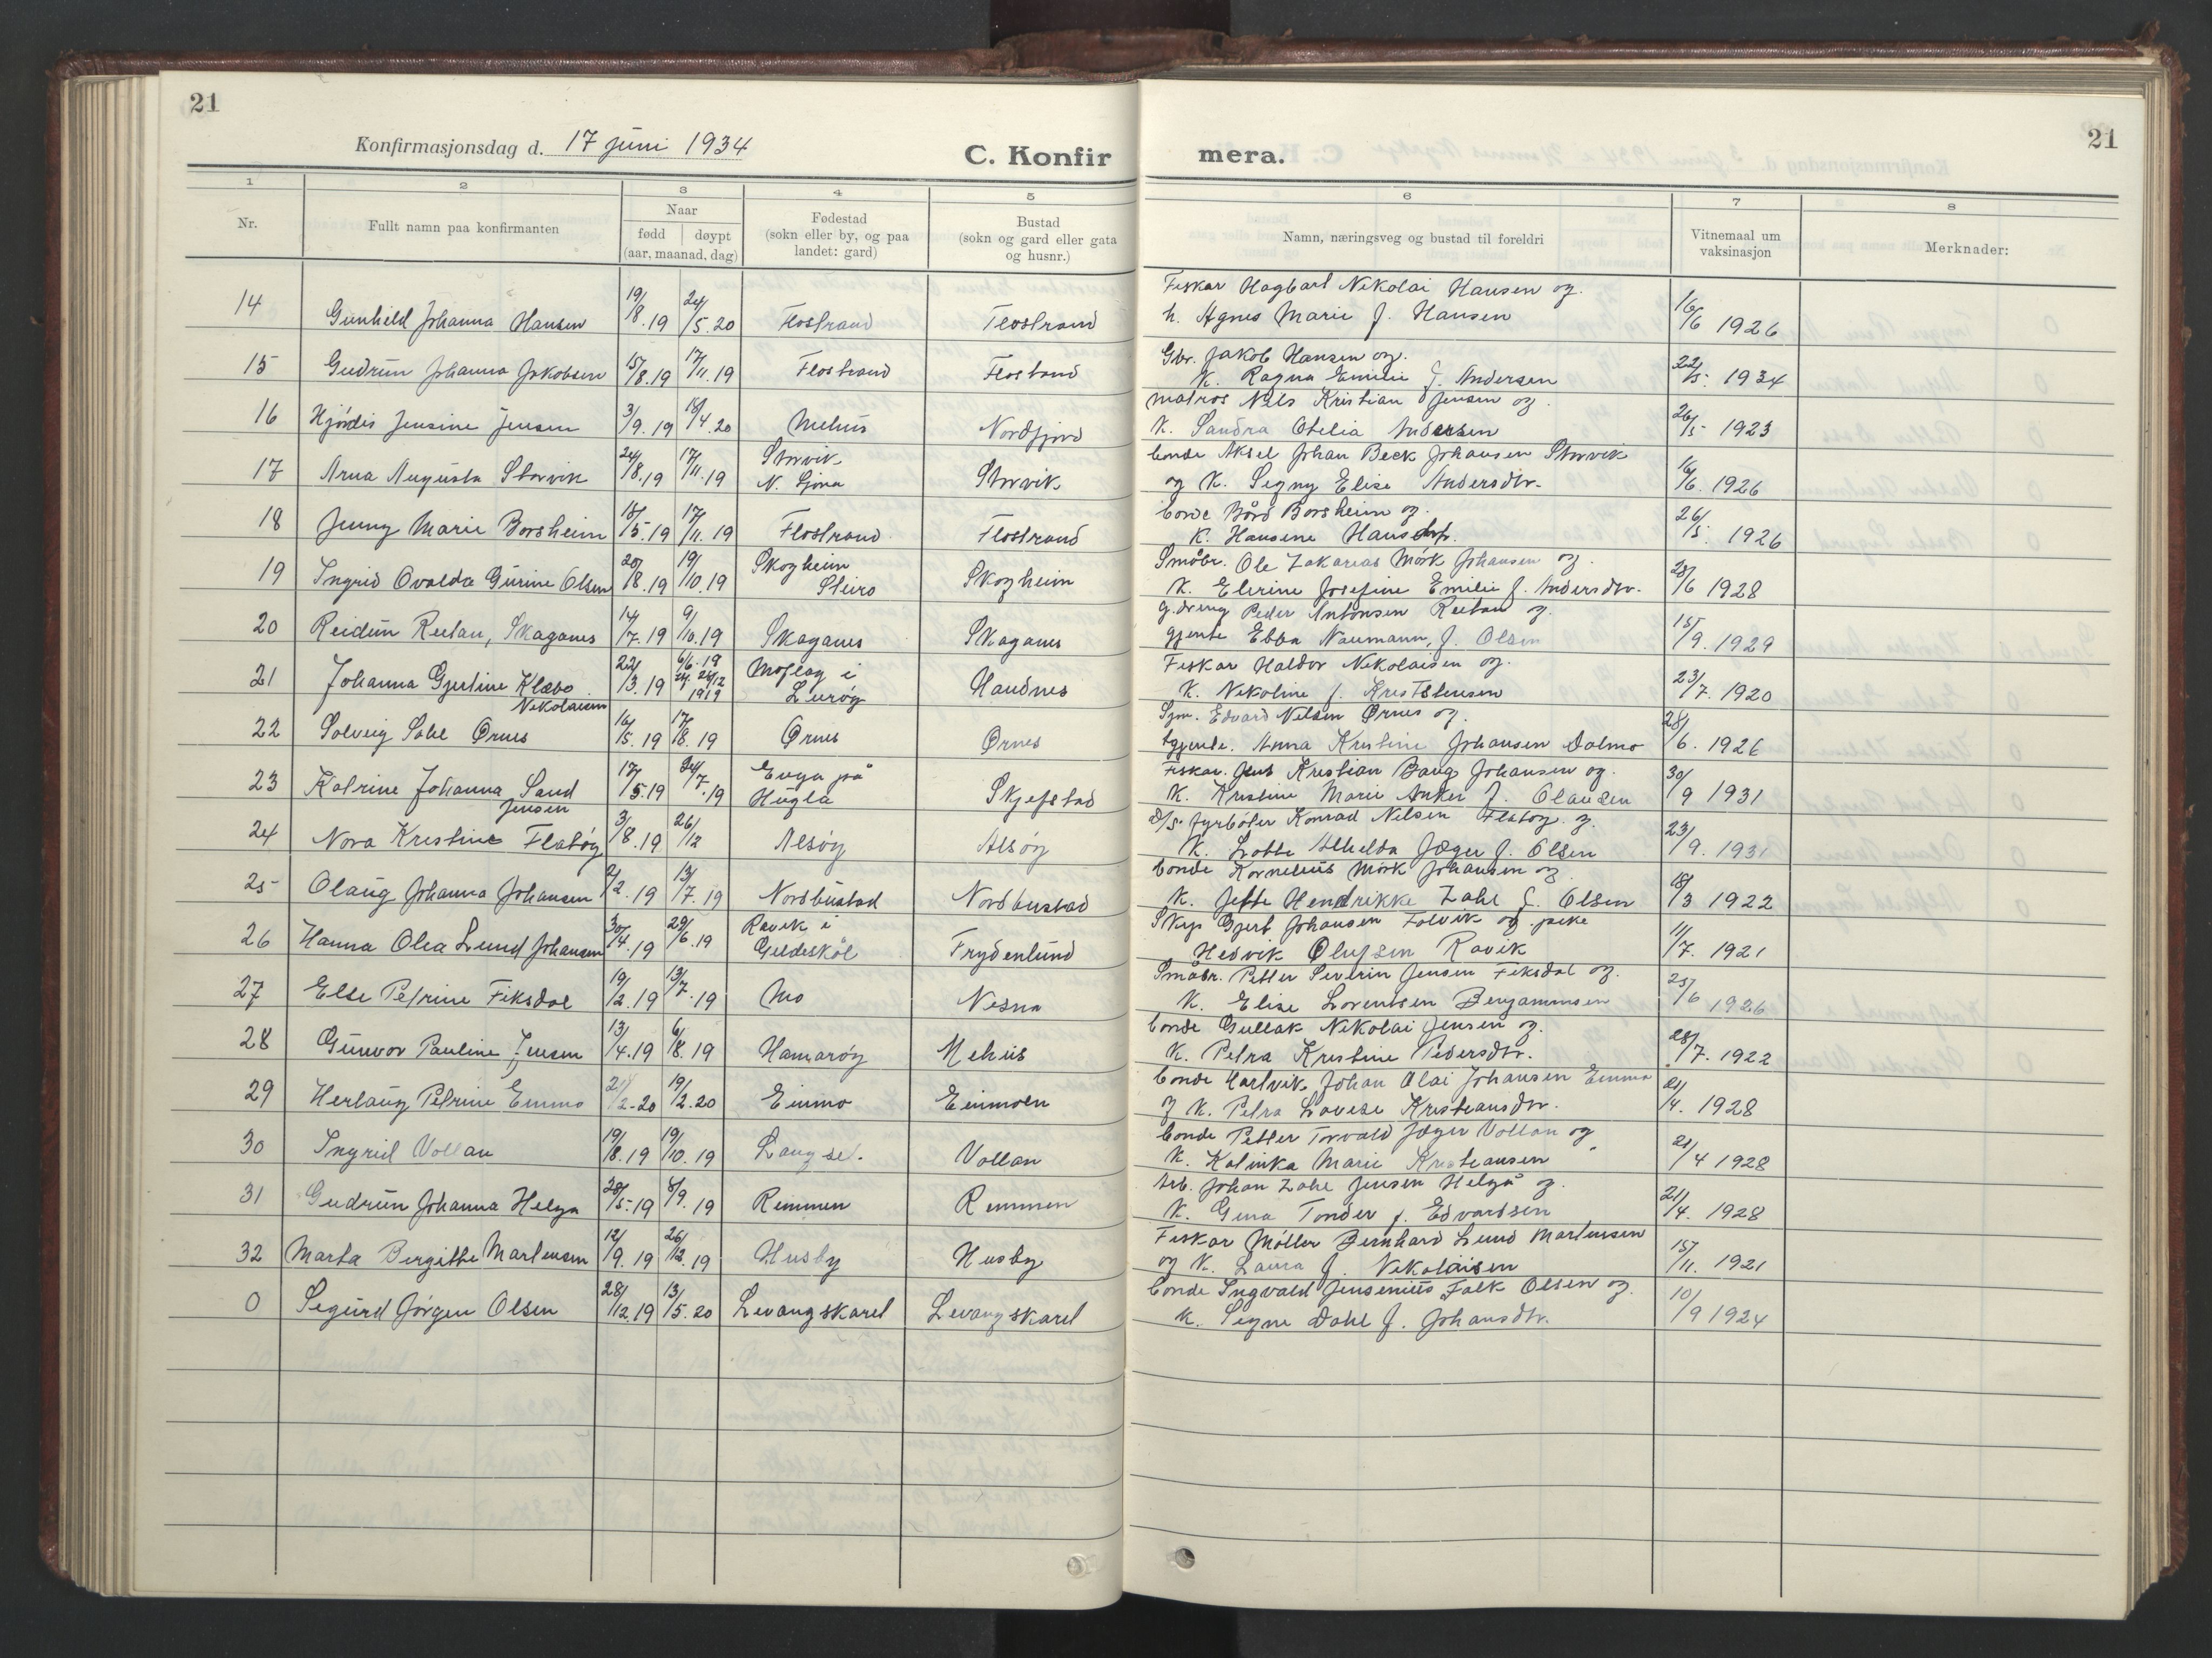 21
21
Konfirmasjonsdag d. 17 juni 1934
C. Konfir mera.
1 2 3 4 5 6 7 8
Nr.
Fullt namn paa konfirmanten
Naar
fødd døypt
(aar, maanad, dag)
Fødestad
(sokn eller by, og paa
landet: gard)
Bustad
(sokn og gard eller gata
og husnr.)
Namn, næringsveg og bustad til foreldri
Vitnemaal um
vaksinasjon
Merknader:
Fiskar Hagbart Nikolai Hansen og
14 Gunhild Johanna Hansen 19/8.19 24/5.20 Flostrand Flostrand h. Agnes Marie f. Hansen 16/6 1926
Gbr. Jakob Hansen og
15 Gudrun Johanna Jakobsen 15/8.19 17/11.19 Flostrand Flostrand K. Ragna Emilie f. Andersen 22/5. 1934
matros Nils Kristian Jensen og
16 Hjördis Jensine Jensen 3/9.19 18/4.20 Mehus Nordfjord K. Sandra Otelia Andersen 26/5 1923
Storvik bonde Aksel Johan Beck Johansen Storvik
17 Arna Augusta Storvik 24/8.19 17/11.19 N. Sjona Storvik og K. Signy Elise Andersdtr. 16/6. 1926
bonde Bård Borsheim og
18 Jenny Marie Borsheim 18/5.19 17/11.19 Flostrand Flostrand K. Hansine Hansdtr. 26/5. 1926
Skogheim Småbr. Ole Zakarias Mörk Johansen og
19 Ingrid Ovalda Gurine Olsen 20/8.19 19/10.19 Steiro Skogheim K. Elerine Josefine Emilie f. Andersdtr. 28/6 1928
g.dreng Peder Antonsen Reitan og
20 Reidun Reitan, Skaganes 14/7.19 9/10.19 Skaganes Skaganes gjente Ebba Naumann, f. Olsen 15/9. 1929
6/6.19 Moflag i Fiskar Haldor Nikolaisen og
21 Johanna Gjertine Klæbo 22/3.19 1919 Luröy Handnes K. Nikoline f. Kristensen 23/7. 1920
Nikolaisen
Sjm. Edvard Nelsen Ørnes og
22 Solveig Sahl Ørnes 16/5.19 17/8.19 Ørnes Ørnes tgjente. Anna Kristine Johansen Dalmo 28/6. 1926
på Fiskar. Jens Kristian Bang Johansen og
23 Katrine Johanna Sand 17/5.19 24/7.19 Hugla Skjefstad K. Kristine Marie Anker f. Olausen 30/9 1931
Jensen
D/S. fyrböter Konrad Nilsen Flatöy og
24 Nora Kristine Flatöy 3/8.19 26/12 Alsöy Alsöy K. Lotte Jæger f. Olsen 23/9. 1931
bonde Kornelius Mörk Johansen og
25 Olaug Johanna Johansen 2/2.19 13/7.19 Nordbustad Nordbustad K. Jette Hendrikke Zahl f. Olsen 18/3 1922
Ravik i Skip Gjert Johansen og
26 Hanna Olea Lund Johansen 30/4.19 29/6.19 Gildeskål Frydenlund Hedvik Olufsen Ravik 11/7. 1921
Småbr. Petter Severin Jensen Fiksdal og
27 Else Petrine Fiksdal 19/2.19 13/7.19 Mo Nesna K. Elise Lorentsen Benjaminsen 25/6 1926
bonde Gullak Nikolai Jensen og
28 Gunvor Pauline Jensen 13/4.19 6/8.19 Hamaröy Mehus K. Petra Kristine Pedersdtr. 28/7. 1922
bonde Hartvik Johan Olai Johansen Einmo
29 Herlaug Petrine Einmo 21/2-20 19/2.20 Einmo Einmoen og K. Petra Lovise Kristiansdtr. 21/4. 1928
bonde Petter Torvald Jæger Vollan og
30 Ingrid Vollan 19/8.19 19/10.19 Langset. Vollan K. Kalinka Marie Kristiansen 21/4 1928
Arb. Johan Zahl Jensen Helgå og
31 Gudrun Johanna Helga 28/5.19 8/9.19 Remmen Remmen K. Gina Tonder f. Edvardsen 21/4. 1928
Fiskar Möller Bernhard Lund Martensen
32 Marta Bergitte Martensen 12/9.19 26/12.19 Husby Husby og K. Laura f. Nikolaisen 15/11. 1921
bonde Ingvald Jensenius Falk Olsen og
0 Sigurd Jörgen Olsen 28/12.19 13/5.20 Levangskaret Levangskaret K. Signe Dahl f. Johansdtr. 10/9 1924